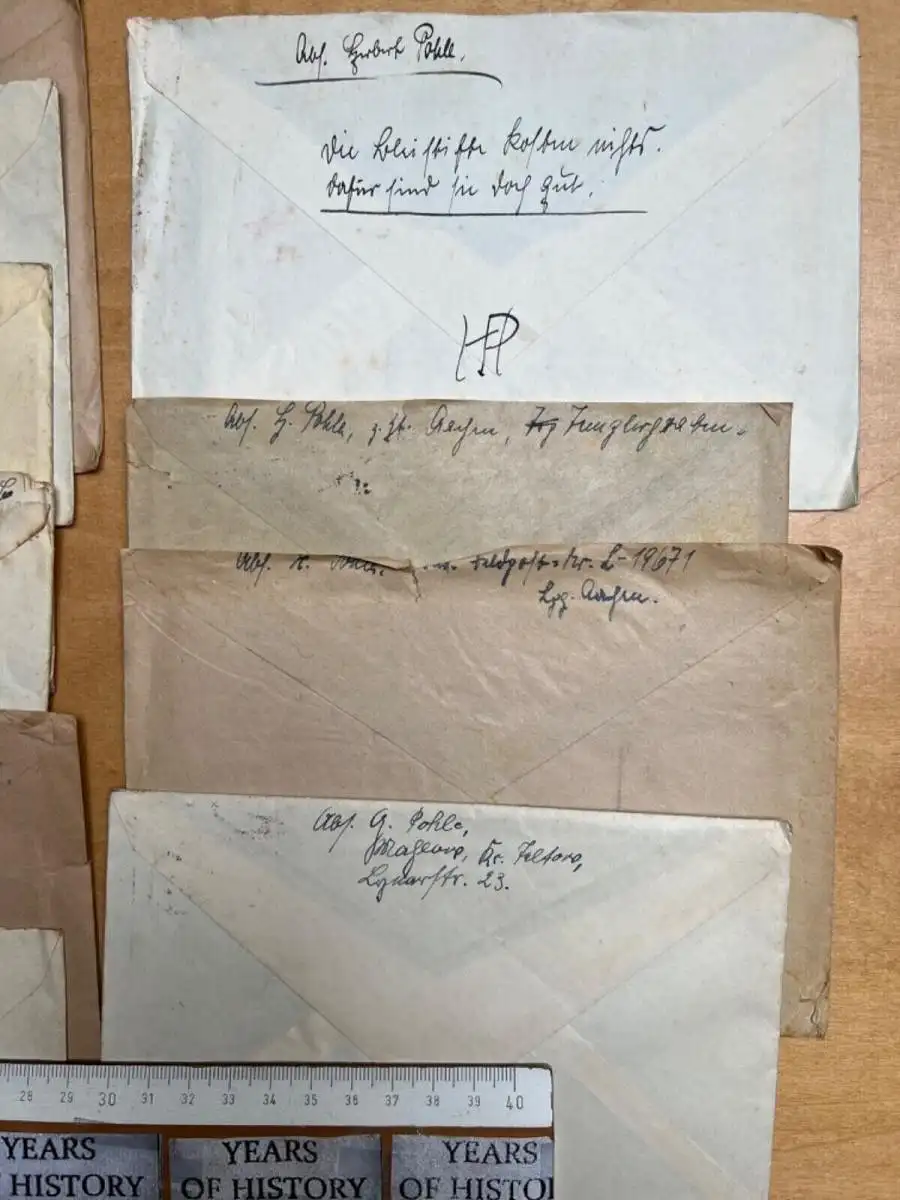 Abs. Herbert Pohle.
Die Bleistifte kosten nichts.
Dafür sind sie doch gut.
HP
Abs. H. Pohle, z. Zt. Aachen,
Abs. H. Feldpost-Nr. L-19671
Lpg. Aachen.
Abs. G. Pohle,
Maglow, Kr. Teltow,
Lynarstr. 23.
28 29 30 31 32 33 34 35 36 37 38 39 40
YEARS YEARS YEARS
HISTORY OF HISTORY OF HISTO